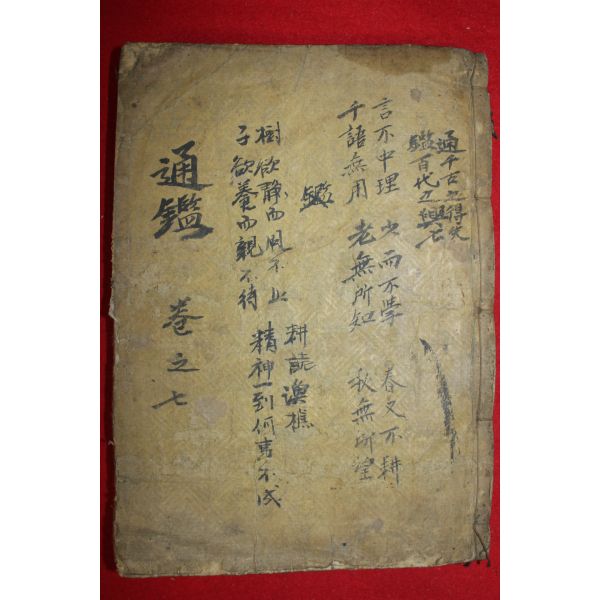 通千古之得失
鑑百代之興亡
言不中理 少而不學 春不耕
千語無用 老無所知 秋無所望
鑑
耕読漁樵
樹欲静而風不止
子欲養而親不待
精神一到何事不成
通鑑 卷之七